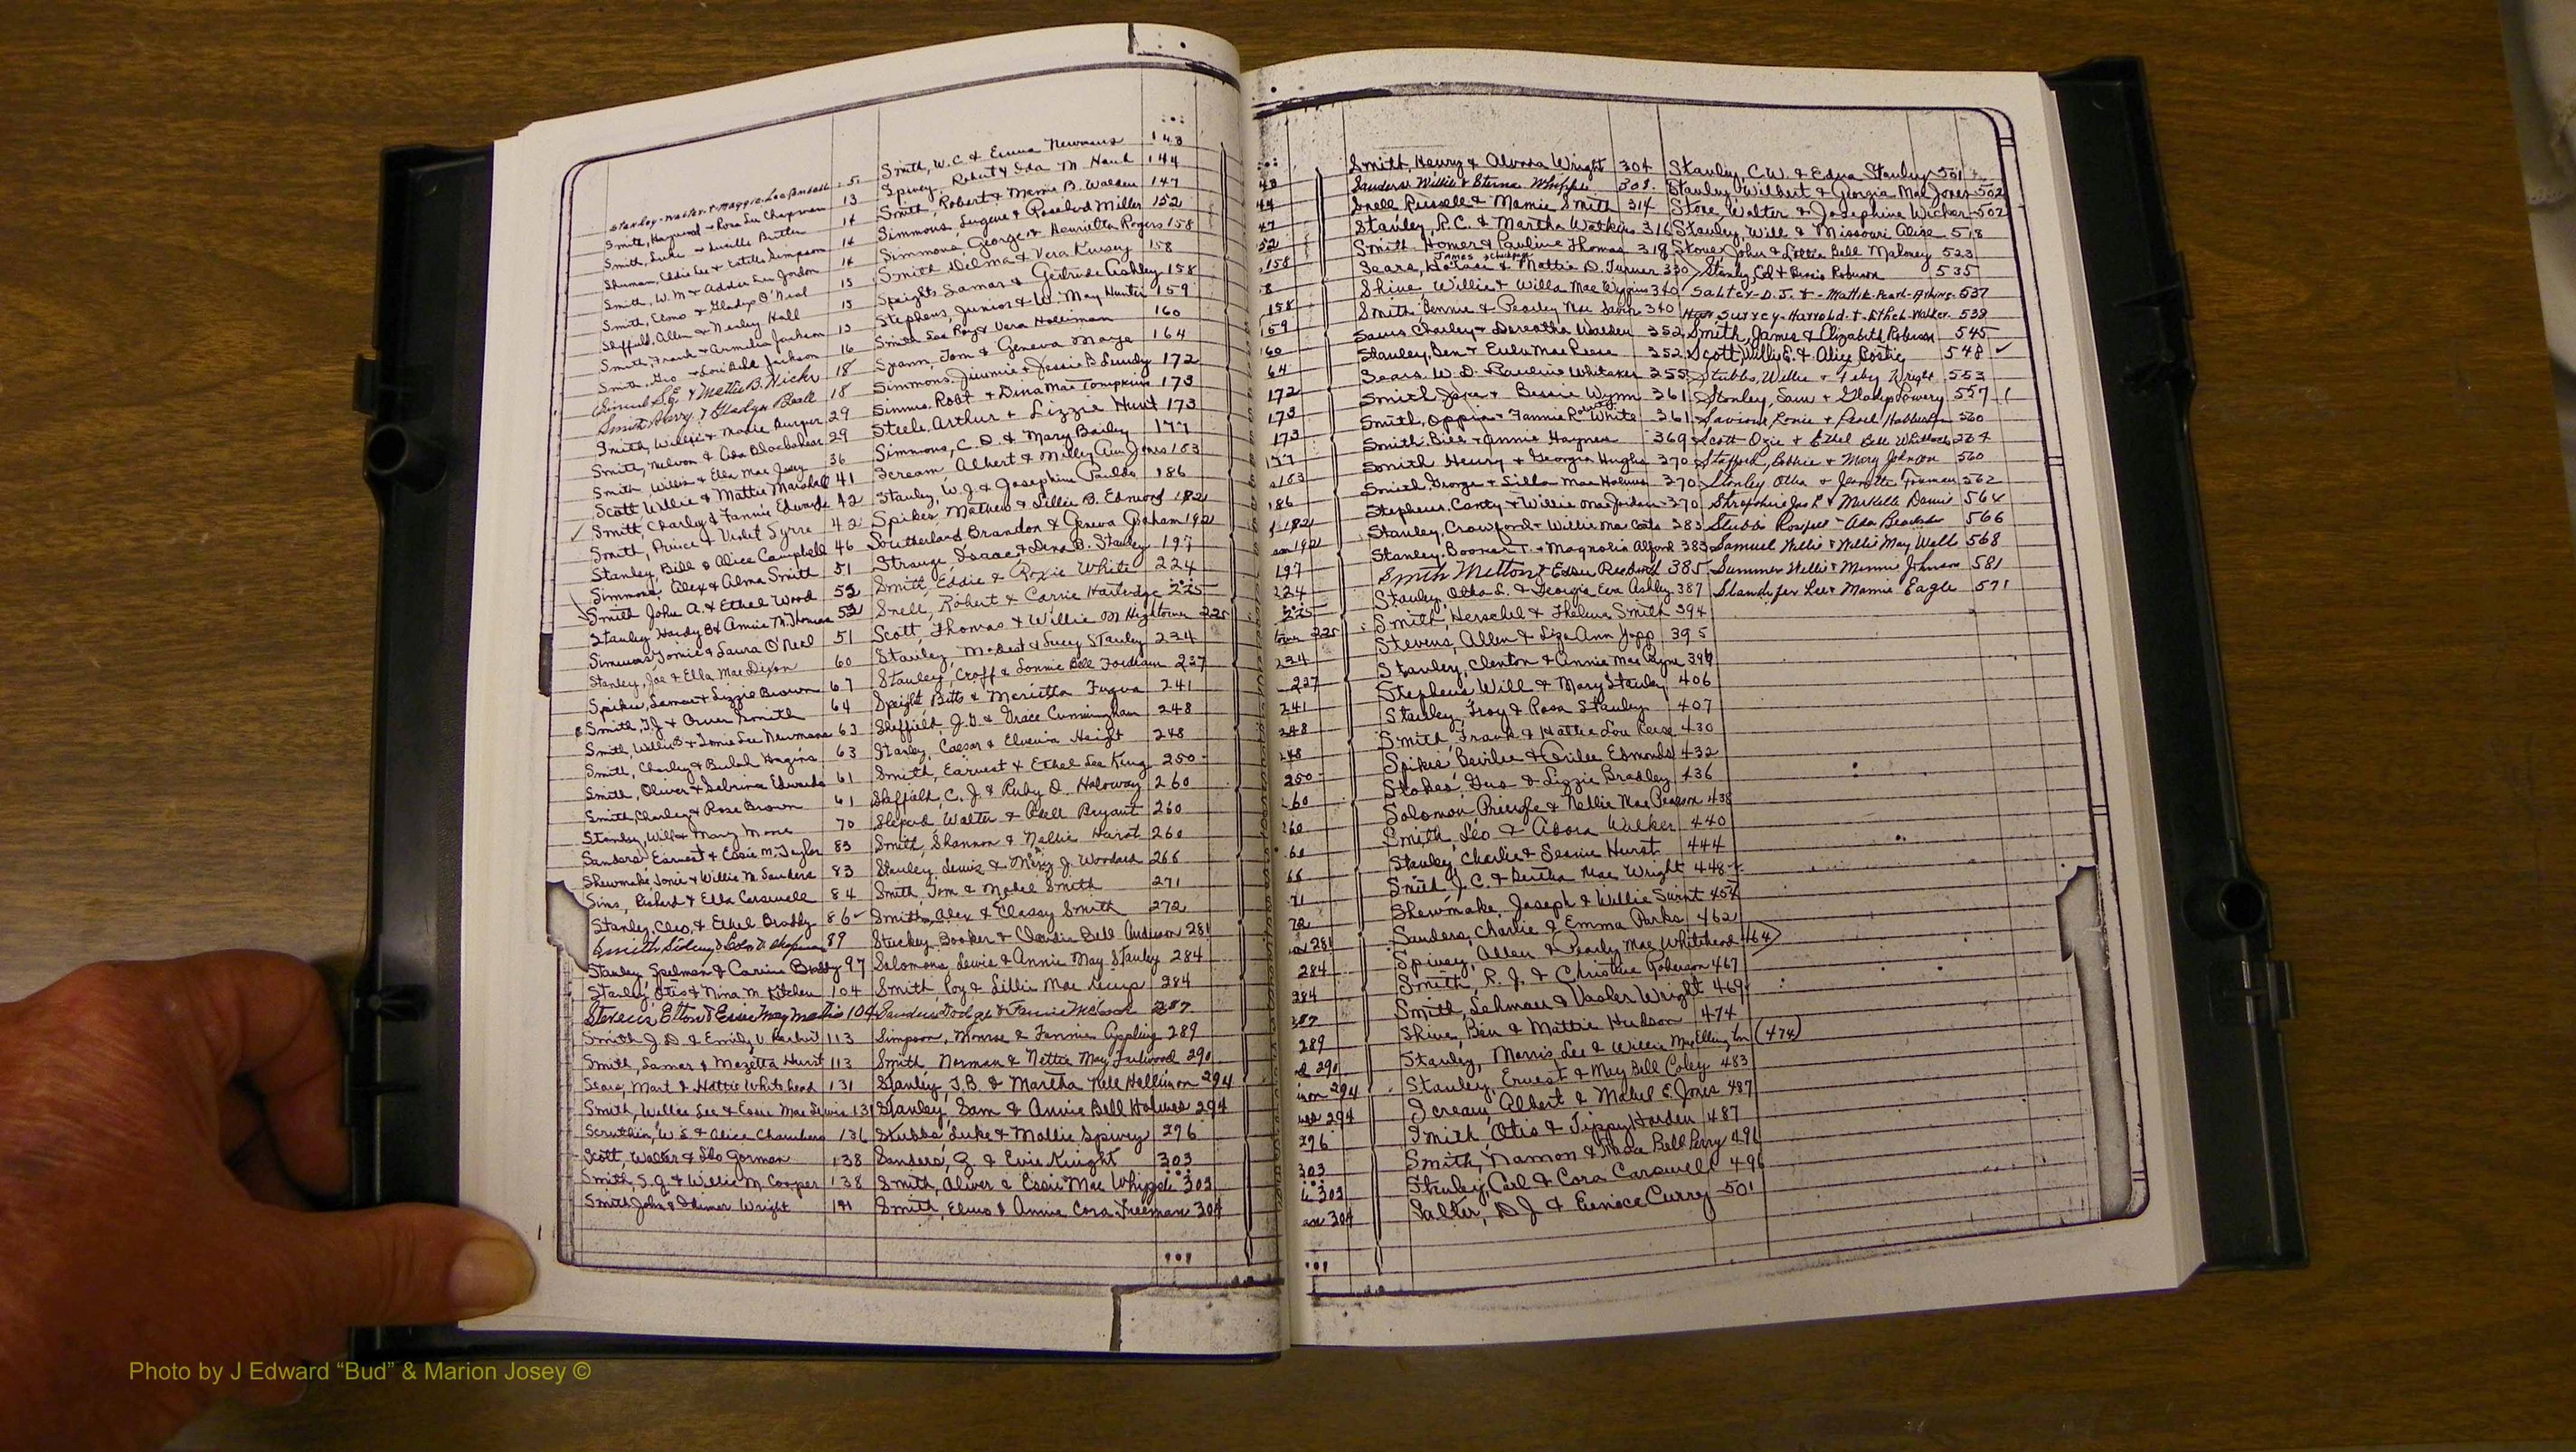 Stanley Walter & Maggie Lee 5
Smith, Haywood & Rosa Lee Chapman 13
Smith, Luke & Lucille Butler 14
Shuman, Eddie Lee & Estelle Simpson 14
Smith, W. M & Addie Lee Jordon 14
Smith, Elmo & Gladys O'Neal 15
Sheffield, Allen & Hall 15
Smith, Frank & Armelia Jackson 15
Smith, Geo & Lori Bell Jackson 16
& Mattie B. Hicks 18
Smith Harry & Gladys Beall 18
Smith, Willie & Marie Burger 29
Smith, Nelson & Ada Blackshear 29
Smith, Willis & Ella Mae Josey 36
Scott Willie & Mattie Marshall 41
Smith, Charley & Fannie Edwards 42
Smith, Prince & Violet 42
Stanley, Bill & Alice Campbell 46
Simmons, Alex & Alma Smith 51
Smith John A. & Ethel Wood 52
Stanley Hardy B & Annie M. Thomas 52
Simmons, Tomie & Laura O'Neal 51
Stanley, Joe & Ella Mae Dixon 60
Spikes, Lamar & Lizzie Brown 67
Smith, T.J & Smith 64
Smith Willie B & Lee Newmans 63
Smith, Charley & Bulah Hagins 63
Smith, Oliver & Sabrina Edwards 61
Smith, Charley & Rose Brown 61
Stanley, Will & Mary Moore 70
Sanders Earnest & Essie M. Taylor 83
Shewmake, Jonie & Willie M. Sanders 83
Sims, Richard & Ella Carswell 84
Stanley, Cleo, & Ethel Braddy 86
Smith Sidney & 89
Stanley, Spelman & Carrie Braddy 97
Stanley, Otis & Nina M. Kitchen 104
Stevens Elton & Essie May 104
Smith J. D. & Emily V. 113
Smith, Lamar & Mozetta Hurst 113
Sears, Mart & Hattie Whitehead 131
Smith, Willie Lee & Essie Mae Lewis 131
W. S. & Alice Chambers 136
Scott, Walter & Gorman 138
Smith, S. J. & Willie M. Cooper 138
Smith John & Wright 141
Smith, W. C. & Emma Newmans 143
Spivey, Robert & Ida M. 144
Smith, Robert & Mamie B. Walden 147
Simmons, Eugene & Rosebud Miller 152
Simmons George & Henrietta Rogers 158
Smith Delma & Vera Kinsey 158
Speights Lamar & Gertrude Ashley 158
Stephens, Junior & W. May Hunter 159
Smith Lee Roy & Vera Holliman 160
Spann, Tom & Geneva 164
Simmons, Jimmie & Jessie B Lundy 172
Simms, Robt & Dina Mae Tompkins 173
Steele, Arthur & Lizzie Hunt 173
Simmons, C. D. & Mary Bailey 177
Scream Albert & Milley Ann Jones 183
Stanley, W. J & Josephine 186
Spikes, Mathew & Lillie B. Edmond 192
Southerland Brandon & Geneva Graham 192
Strange, Isaac & Dena B. Stanley 197
Smith, Eddie & Roxie White 224
Snell, Robert & Carrie Hartridge 225
Scott, Thomas & Willie M Hightower 225
Stanley, & Lucy Stanley 234
Stanley, Croff & Lonnie Bell Fordham 237
Speight Bitts & Fuqua 241
Sheffield, J. D. & Grace Cunningham 248
Stanley, Caesar & Height 248
Smith, Earnest & Ethel Lee King 250
Sheffield, C. J. & Ruby D. Holoway 260
Sheperd Walter & Bryant 260
Smith, Shannon & Nellie Hurst 260
Stanley, Lewis & Mary J. Woodard 266
Smith, Tom & Mabel Smith 271
Smith, Alex & Classy Smith 272
Stuckey Booker & Claudia Bell Anderson 281
Solomons, Lewis & Annie May Stanley 284
Smith, Roy & Lillie Mae 284
Sanders & Fannie McCook 287
Simpson, Monroe & Fannie Appling 289
Smith, Norman & Nettie May 290
Stanley, J. B. & Martha Nell Holliman 294
Stanley, Sam & Annie Bell Holmes 294
Stubbs, Luke & Mollie Spivey 296
Sanders, G. & Evie Knight 303
Smith, Oliver & Essie Mae Whipple 303
Smith, Elmo & Annie Cora Freeman 304
Smith, Henry & Alvora Wright 304
Sanders Willie & Whipple 308
Snell Russell & Mamie Smith 314
Stanley, R. C. & Martha Watkins 316
Smith, Homer & Pauline Thomas 319
James
Sears, Horace & Mattie D. Turner 330
Shine Willie & Willa Mae Wiggins 340
Smith Bennie & Pearley Mae 340
Charley & Dorotha Warden 352
Stanley, Ben & Eula Mae Reese 352
Sears W. D. & Pauline Whitaker 355
Smith Jake & Bessie Wynn 361
Smith, Oppie & Fannie R. White 361
Smith Bill & Annie Haynes 369
Smith Henry & Georgia Hughs 370
Smith, George & Lilla Mae Holmes 370
Stephens, Canty & Willie Mae Jordan 370
Stanley, Crawford & Willie Mae Coats 383
Stanley, Booker T. & Magnolia Alford 383
Smith Milton & 385
Stanley, Otha L. & Georgia Eva Ashley 387
Smith, Herschel & Thelma Smith 394
Stevens, Allen & Liza Ann 395
Stanley, Clenton & Annie Mae Payne 396
Stephens Will & Mary Stanley 406
Stanley, Troy & Rosa Stanley 407
Smith, Frank & Hattie Lou Reese 430
Spikes & Edmonds 432
Stokes, Gus & Lizzie Bradley 436
Solomon, & Nellie Mae Pearson 438
Smith, Leo & Adora Walker 440
Stanley Charlie & Hurst 444
Smith J. C. & Bertha Mae Wright 448
Shewmake, Joseph & Willie Swint 454
Sanders, Charlie & Emma Parks 462
Spivey, Allen & Pearly Mae Whitehead 464
Smith, R. J. & Christine Roberson 467
Smith, Lehman & Wright 469
Shine, Ben & Mattie Hudson 474
Stanley, Morris Lee & Willie Mae Ellington (474)
Stanley, Ernest & May Bell Coley 483
Scream, Albert & Mabel E. Jones 487
Smith, Otis & Tippy Harden 487
Smith, Namon & Bell Perry 491
Stanley, Carl & Cora Carswell 496
Salter, D. J. & Eunice Curry 501
Stanley, C. W. & Edna Stanley 501
Stanley, Wilbert & Georgia Mae Jones 502
Stone, Walter & Josephine Wicker 502
Stanley, Will & Missouri 518
Stone, John & Lottie Bell Maloney 523
Stanley, Col & Bessie Robison 535
Salter - D. J. & - Mattie Pearl - 537
Surrey - Harrold - & - Ethel - Walker - 538
Smith, James & Elizabeth Roberson 545
Scott, Willie E. & Alice Bostic 548
Stubbs, Willie & Wright 553
Stanley, Sam & Gladys Lowery 557
Lonie & Pearl 560
Scott Ozie & Ethel Bell Whitlock 564
Stafford, Bobbie & Mary Johnson 560
Stanley Otha & Jeanette Freeman 562
Shropshire Jas L & Dennis 564
Stubbs & Ada 566
Samuel Willie & Willie May Wells 568
Summer Willie & Minnie Johnson 581
Standifer Lee & Mamie Eagle 571
Photo by J Edward “Bud” & Marion Josey ©